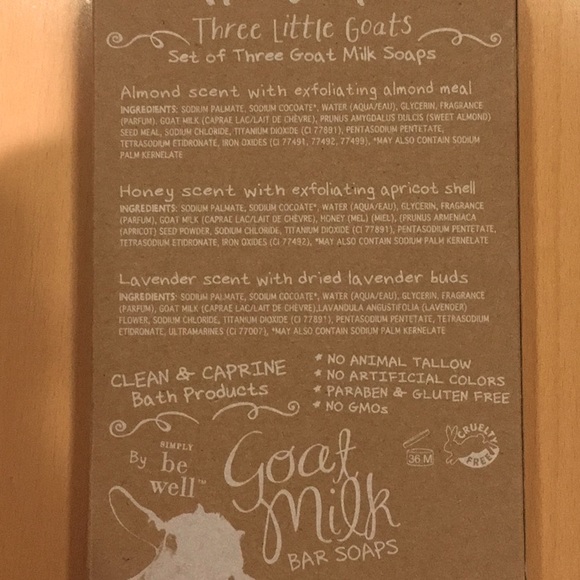 Three Little Goats
Set of Three Goat Milk Soaps
Almond scent with exfoliating almond meal
INGREDIENTS: SODIUM PALMATE, SODIUM COCOATE*, WATER (AQUA/EAU), GLYCERIN, FRAGRANCE
(PARFUM), GOAT MILK (CAPRAE LAC/LAIT DE CHÈVRE), PRUNUS AMYGDALUS DULCIS (SWEET ALMOND)
SEED MEAL, SODIUM CHLORIDE, TITANIUM DIOXIDE (CI 77891), PENTASODIUM PENTETATE,
TETRASODIUM ETIDRONATE, IRON OXIDES (CI 77491, 77492, 77499), *MAY ALSO CONTAIN SODIUM
PALM KERNELATE
Honey scent with exfoliating apricot shell
INGREDIENTS: SODIUM PALMATE, SODIUM COCOATE*, WATER (AQUA/EAU), GLYCERIN, FRAGRANCE
(PARFUM), GOAT MILK (CAPRAE LAC/LAIT DE CHÈVRE), HONEY (MEL) (MIEL), (PRUNUS ARMENIACA
(APRICOT) SEED POWDER, SODIUM CHLORIDE, TITANIUM DIOXIDE (CI 77891), PENTASODIUM PENTETATE,
TETRASODIUM ETIDRONATE, IRON OXIDES (CI 77492), *MAY ALSO CONTAIN SODIUM PALM KERNELATE
Lavender scent with dried lavender buds
INGREDIENTS: SODIUM PALMATE, SODIUM COCOATE*, WATER (AQUA/EAU), GLYCERIN, FRAGRANCE
(PARFUM), GOAT MILK (CAPRAE LAC/LAIT DE CHÈVRE),LAVANDULA ANGUSTIFOLIA (LAVENDER)
FLOWER, SODIUM CHLORIDE, TITANIUM DIOXIDE (CI 77891), PENTASODIUM PENTETATE, TETRASODIUM
ETIDRONATE, ULTRAMARINES (CI 77007), *MAY ALSO CONTAIN SODIUM PALM KERNELATE
CLEAN & CAPRINE
Bath Products
* NO ANIMAL TALLOW
* NO ARTIFICIAL COLORS
* PARABEN & GLUTEN FREE
* NO GMOs
By SIMPLY
be
well™
Goat
Milk
BAR SOAPS
36 M
CRUELTY
FREE